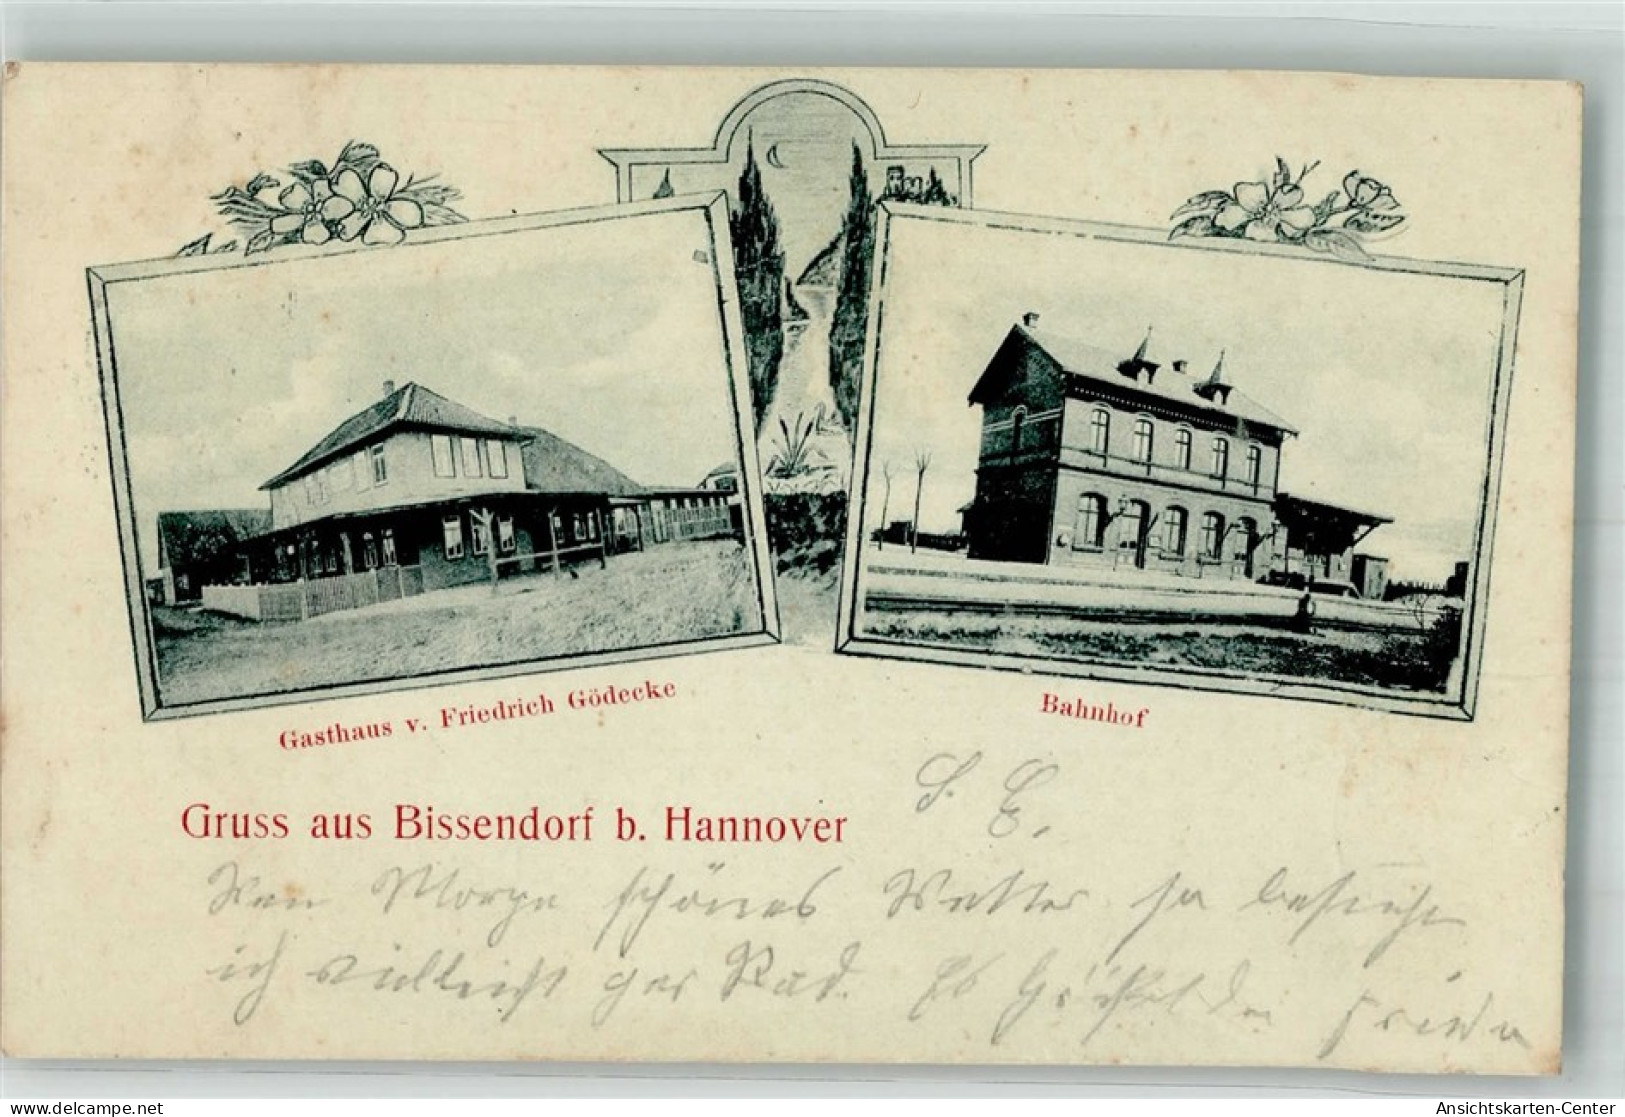 Gasthaus v. Friedrich Gödecke
Bahnhof
Gruss aus Bissendorf b. Hannover
Wen Morgen schönes Wetter so besuche
ich vielleicht per Rad. Es grüßt Frieda
Ansichtskarten-Center